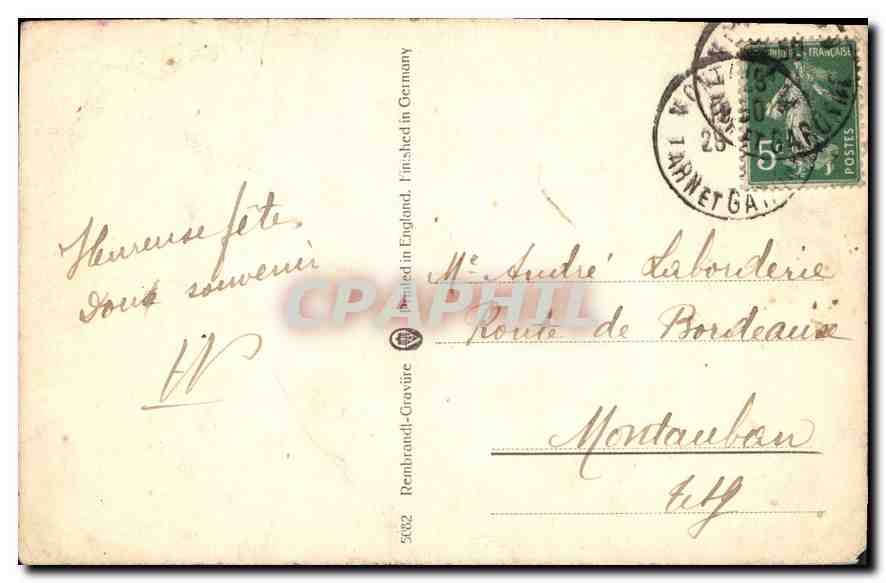 Heureuse fête
Doux souvenir
5082 Rembrandt-Gravüre Printed in England. Finished in Germany
FRANÇAISE
5c
POSTES
TARN ET GARONNE
Me André Laborderie
Route de Bordeaux
Montauban
TetG
CPAPHIL